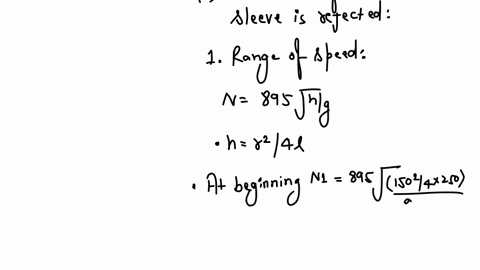 sleeve is refected:
1. Range of speed:
N = 895 √h/g
• h = r²/4l
• At beginning N1 = 895 √(150²/4×250)/a